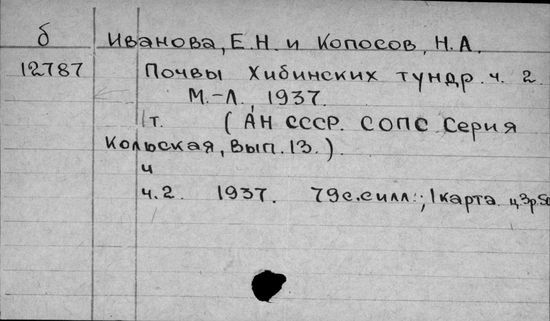 б Иванова, Е.Н. и Копосов, Н.А.
12787 Почвы Хибинских тундр. ч. 2.
М.-Л., 1937.
1т. (АН СССР. СОПС Серия
Кольская, Вып. 13.)
ч
ч.2. 1937. 79с.силл.; 1карта ц3р